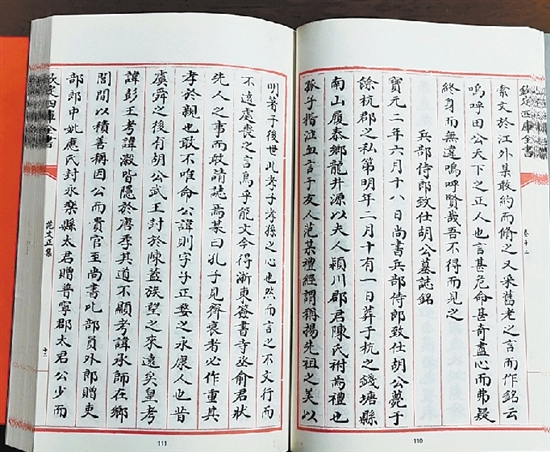 欽定四庫全書
卷十二
索文於江外某敢約而脩之又采舊老之言而作銘云
嗚呼田公天下之正人也言甚危命甚奇盡心而弗疑
終身而無違嗚呼賢哉吾不得而見之
兵部侍郎致仕胡公墓誌銘
寶元二年六月十八日尚書兵部侍郎致仕胡公薨于
餘杭郡之私第明年二月十有一日葬于杭之錢塘縣
南山履泰鄉龍井源以夫人潁川郡君陳氏祔焉禮也
孤子楷泣血言于友人范某禮經謂稱揚先祖之美以
110
明著于後世此孝子孝孫之心也然而言之不文行而
不遠喪之言烏乎能文今得浙東簽書寺丞俞君狀
先人之事而敢請誌焉某曰孔子見齊衰者必作重其
孝於親也敢不唯命公諱則字子正婺之永康人也昔
虞舜之後有胡公武王封於陳蓋族望之來遠矣皇考
諱彭王考諱瀔皆隱於唐季其道不顯考諱承師在鄉
閭間以積善稱因公而貴官至尚書比部員外郎贈吏
部郎中妣應氏封永樂縣太君贈普寧郡太君公少而
欽定四庫全書
范文正集
十二
111